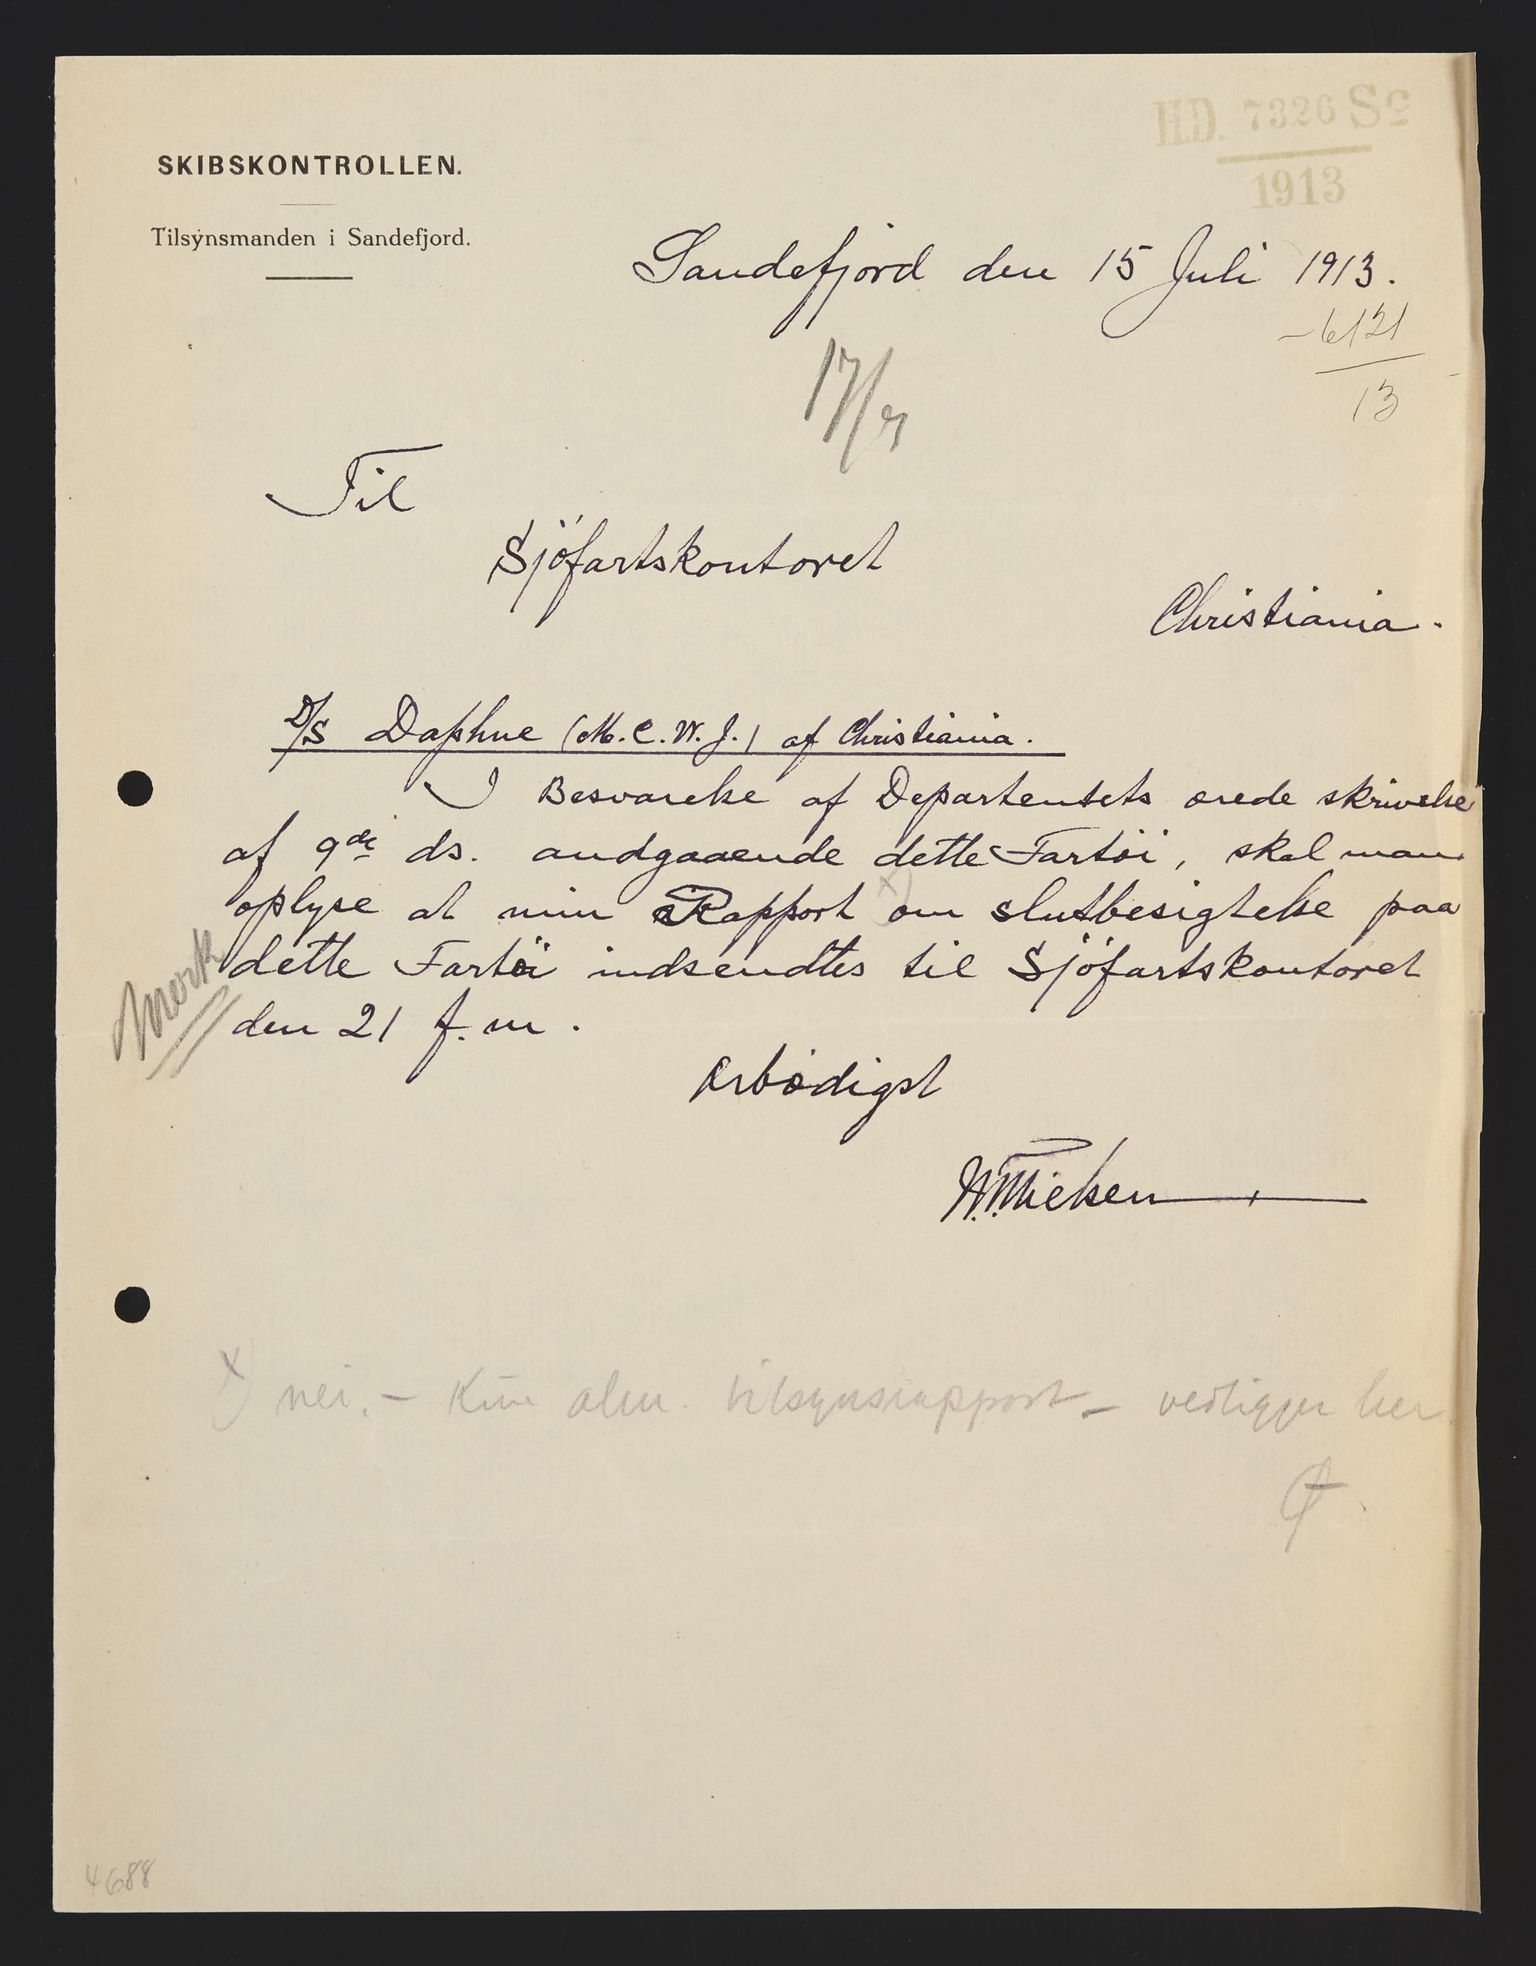 H.D. 7326 Sc
1913
SKIBSKONTROLLEN.
Tilsynsmanden i Sandefjord.
Sandefjord den 15 Juli 1913.
- 6121
13
17/7
Til
Sjöfartskontoret
Christiania.
D/S Daphne (M.C.W.J.) af Christiania.
I Besvarelse af Departentets ærede skrivelse
af 9de ds. andgaaende dette Fartöi, skal man
oplyse at min Rapport x) om slutbesigtelse paa
dette Fartöi indsendtes til Sjöfartskontoret
den 21 f.m.
Mørk
Ærbödigst
Nielsen
x) nei. - Kun alm. tilsynsrapport - vedligger her
4688